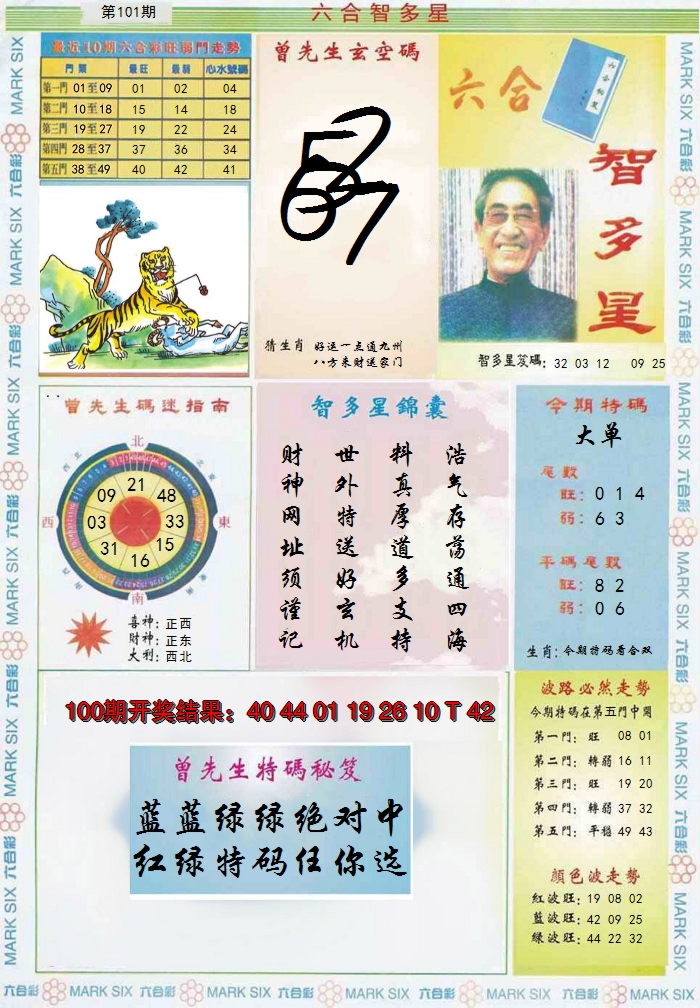 第101期
六合智多星
最近10期六合彩旺弱門走勢
門票 最旺 最弱 心水號碼
第一門 01至09 01 02 04
第二門 10至18 15 14 18
第三門 19至27 19 22 24
第四門 28至37 37 36 34
第五門 38至49 40 42 41
曾先生玄空碼
猜生肖 好运一点通九州
八方来财送家门
六合
智多星
智多星笈碼: 32 03 12 09 25
曾先生碼迷指南
北
西
東
南
21
48
33
15
16
31
03
09
喜神: 正西
财神: 正东
大利: 西北
智多星錦囊
浩气存荡通四海
料真厚道多支持
世外特送好玄机
财神网址须谨记
今期特碼
大单
尾數
旺: 0 1 4
弱: 6 3
平碼尾數
旺: 8 2
弱: 0 6
生肖: 今期特码看合双
100期开奖结果: 40 44 01 19 26 10 T 42
曾先生特碼秘笈
蓝蓝绿绿绝对中
红绿特码任你选
波路必然走勢
今期特碼在第五門中開
第一門: 旺 08 01
第二門: 轉弱 16 11
第三門: 旺 19 20
第四門: 轉弱 37 32
第五門: 平穩 49 43
顏色波走勢
紅波旺: 19 08 02
藍波旺: 42 09 25
綠波旺: 44 22 32
MARK SIX 六合彩